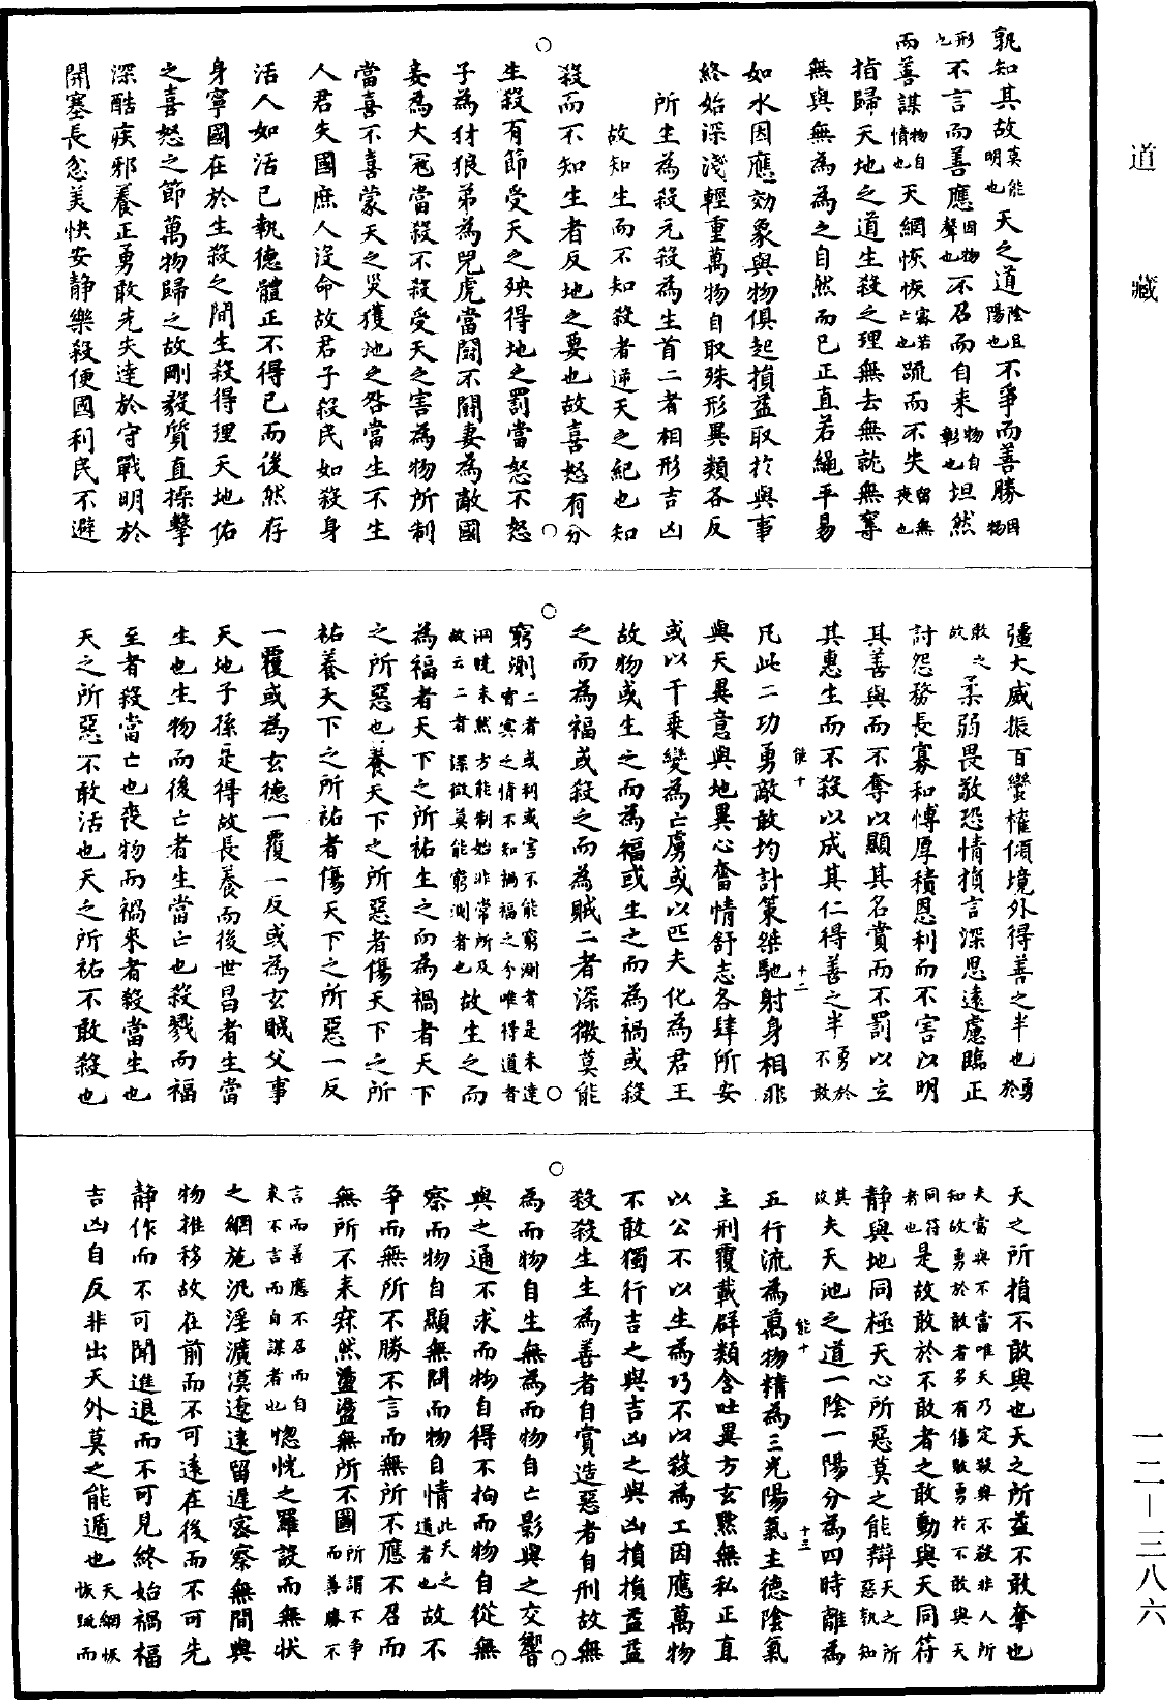 道藏
孰知其故莫能明也天之道陰且陽也不爭而善勝因物
形也不言而善應因物聲也不召而自來物自彰也坦然
而善謀物自情也天網恢恢寡若亡也疏而不失留無喪也
指歸天地之道生殺之理無去無就無奪
無與無為為之自然而已正直若繩平易
如水因應效象與物俱起損益取於與事
終始深淺輕重萬物自取殊形異類各反
所生為殺元殺為生首二者相形吉凶
故知生而不知殺者逆天之紀也知
殺而不知生者反地之要也故喜怒有分
生殺有節受天之殃得地之罰當怒不怒
子為豺狼弟為兕虎當鬪不鬪妻為敵國
妾為大寇當殺不殺受天之害為物所制
當喜不喜蒙天之災獲地之咎當生不生
人君失國庶人沒命故君子殺民如殺身
活人如活已執德體正不得已而後然存
身寧國在於生殺之間生殺得理天地佑
之喜怒之節萬物歸之故剛毅質直操擊
深酷疾邪養正勇敢先失達於守戰明於
開塞長忿美快安靜樂殺便國利民不避
彊大威振百蠻權傾境外得善之半也勇於
敢之故柔弱畏敬恐情損言深思遠慮臨正
討怨務長寡和博厚積恩利而不害以明
其善與而不奪以顯其名賞而不罰以立
其惠生而不殺以成其仁得善之半勇於不敢
能十 十二
凡此二功勇敵敢均計策桀馳射身相非
與天異意與地異心奮情舒志各肆所安
或以千乘變為亡虜或以匹夫化為君王
故物或生之而為福或生之而為禍或殺
之而為福或殺之而為賊二者深微莫能
窮測二者或利或害不能窮測者是未達杳冥之情不知禍福之分唯得道者
洞曉未然方能制始非常所及故云二者深微莫能窮測者也故生之而
為福者天下之所祐生之而為禍者天下
之所惡也養天下之所惡者傷天下之所
祐養天下之所祐者傷天下之所惡一反
一覆或為玄德一覆一反或為玄賊父事
天地子孫是得故長養而後世昌者生當
生也生物而後亡者生當亡也殺戮而福
至者殺當亡也喪物而禍來者殺當生也
天之所惡不敢活也天之所祐不敢殺也
天之所損不敢與也天之所益不敢奪也
夫當與不當唯天乃定殺與不殺非人所知故勇於敢者多有傷敗勇於不敢與天
同符者也是故敢於不敢者之敢動與天同符
靜與地同極天心所惡莫之能辯天之所惡孰知
其故夫天地之道一陰一陽分為四時離為
能十 十三
五行流為萬物精為三光陽氣主德陰氣
主刑覆載群類含吐異方玄默無私正直
以公不以生為巧不以殺為工因應萬物
不敢獨行吉之與吉凶之與凶損損益益
殺殺生生為善者自賞造惡者自刑故無
為而物自生無為而物自亡影與之交響
與之通不求而物自得不拘而物自從無
察而物自顯無問而物自情此天之道者也故不
爭而無所不勝不言而無所不應不召而
無所不來寂然蕩蕩無所不圖所謂不爭而善勝不
言而善應不召而自來不言而自謀者也惚恍之羅設而無狀
之網施汎淫濊漠遼遠留遲密察無間與
物推移故在前而不可遠在後而不可先
靜作而不可聞進退而不可見終始禍福
吉凶自反非出天外莫之能遁也天網恢恢疏而
一二—三八六